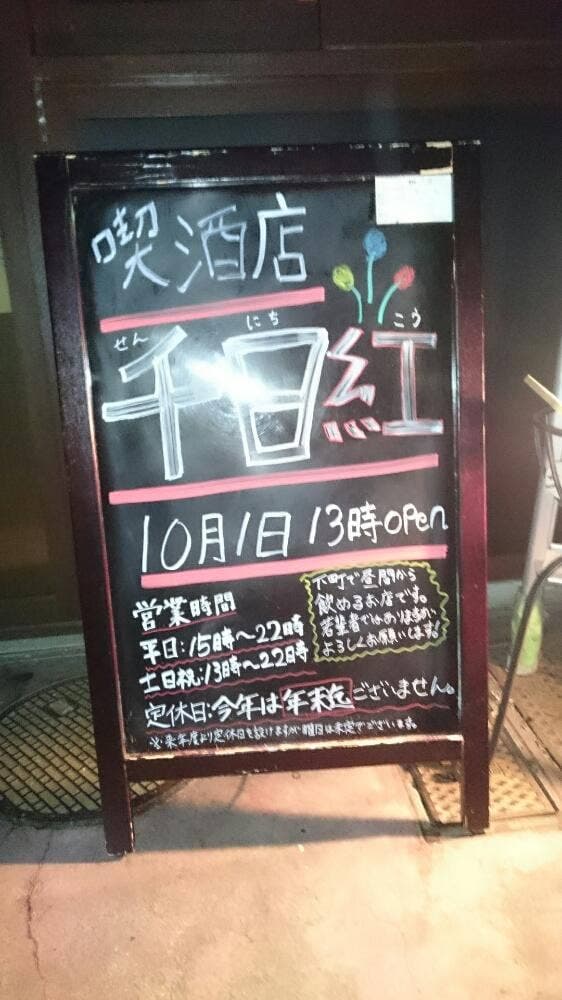 喫酒店
せん にち こう
千日紅
10月1日 13時open
営業時間
平日:15時〜22時
土日祝:13時〜22時
下町で昼間から
飲めるお店です。
若輩者ではありますが、
よろしくお願いします!
定休日:今年は年末迄ございません。
※来年度より定休日を設けますが曜日は未定でございます。